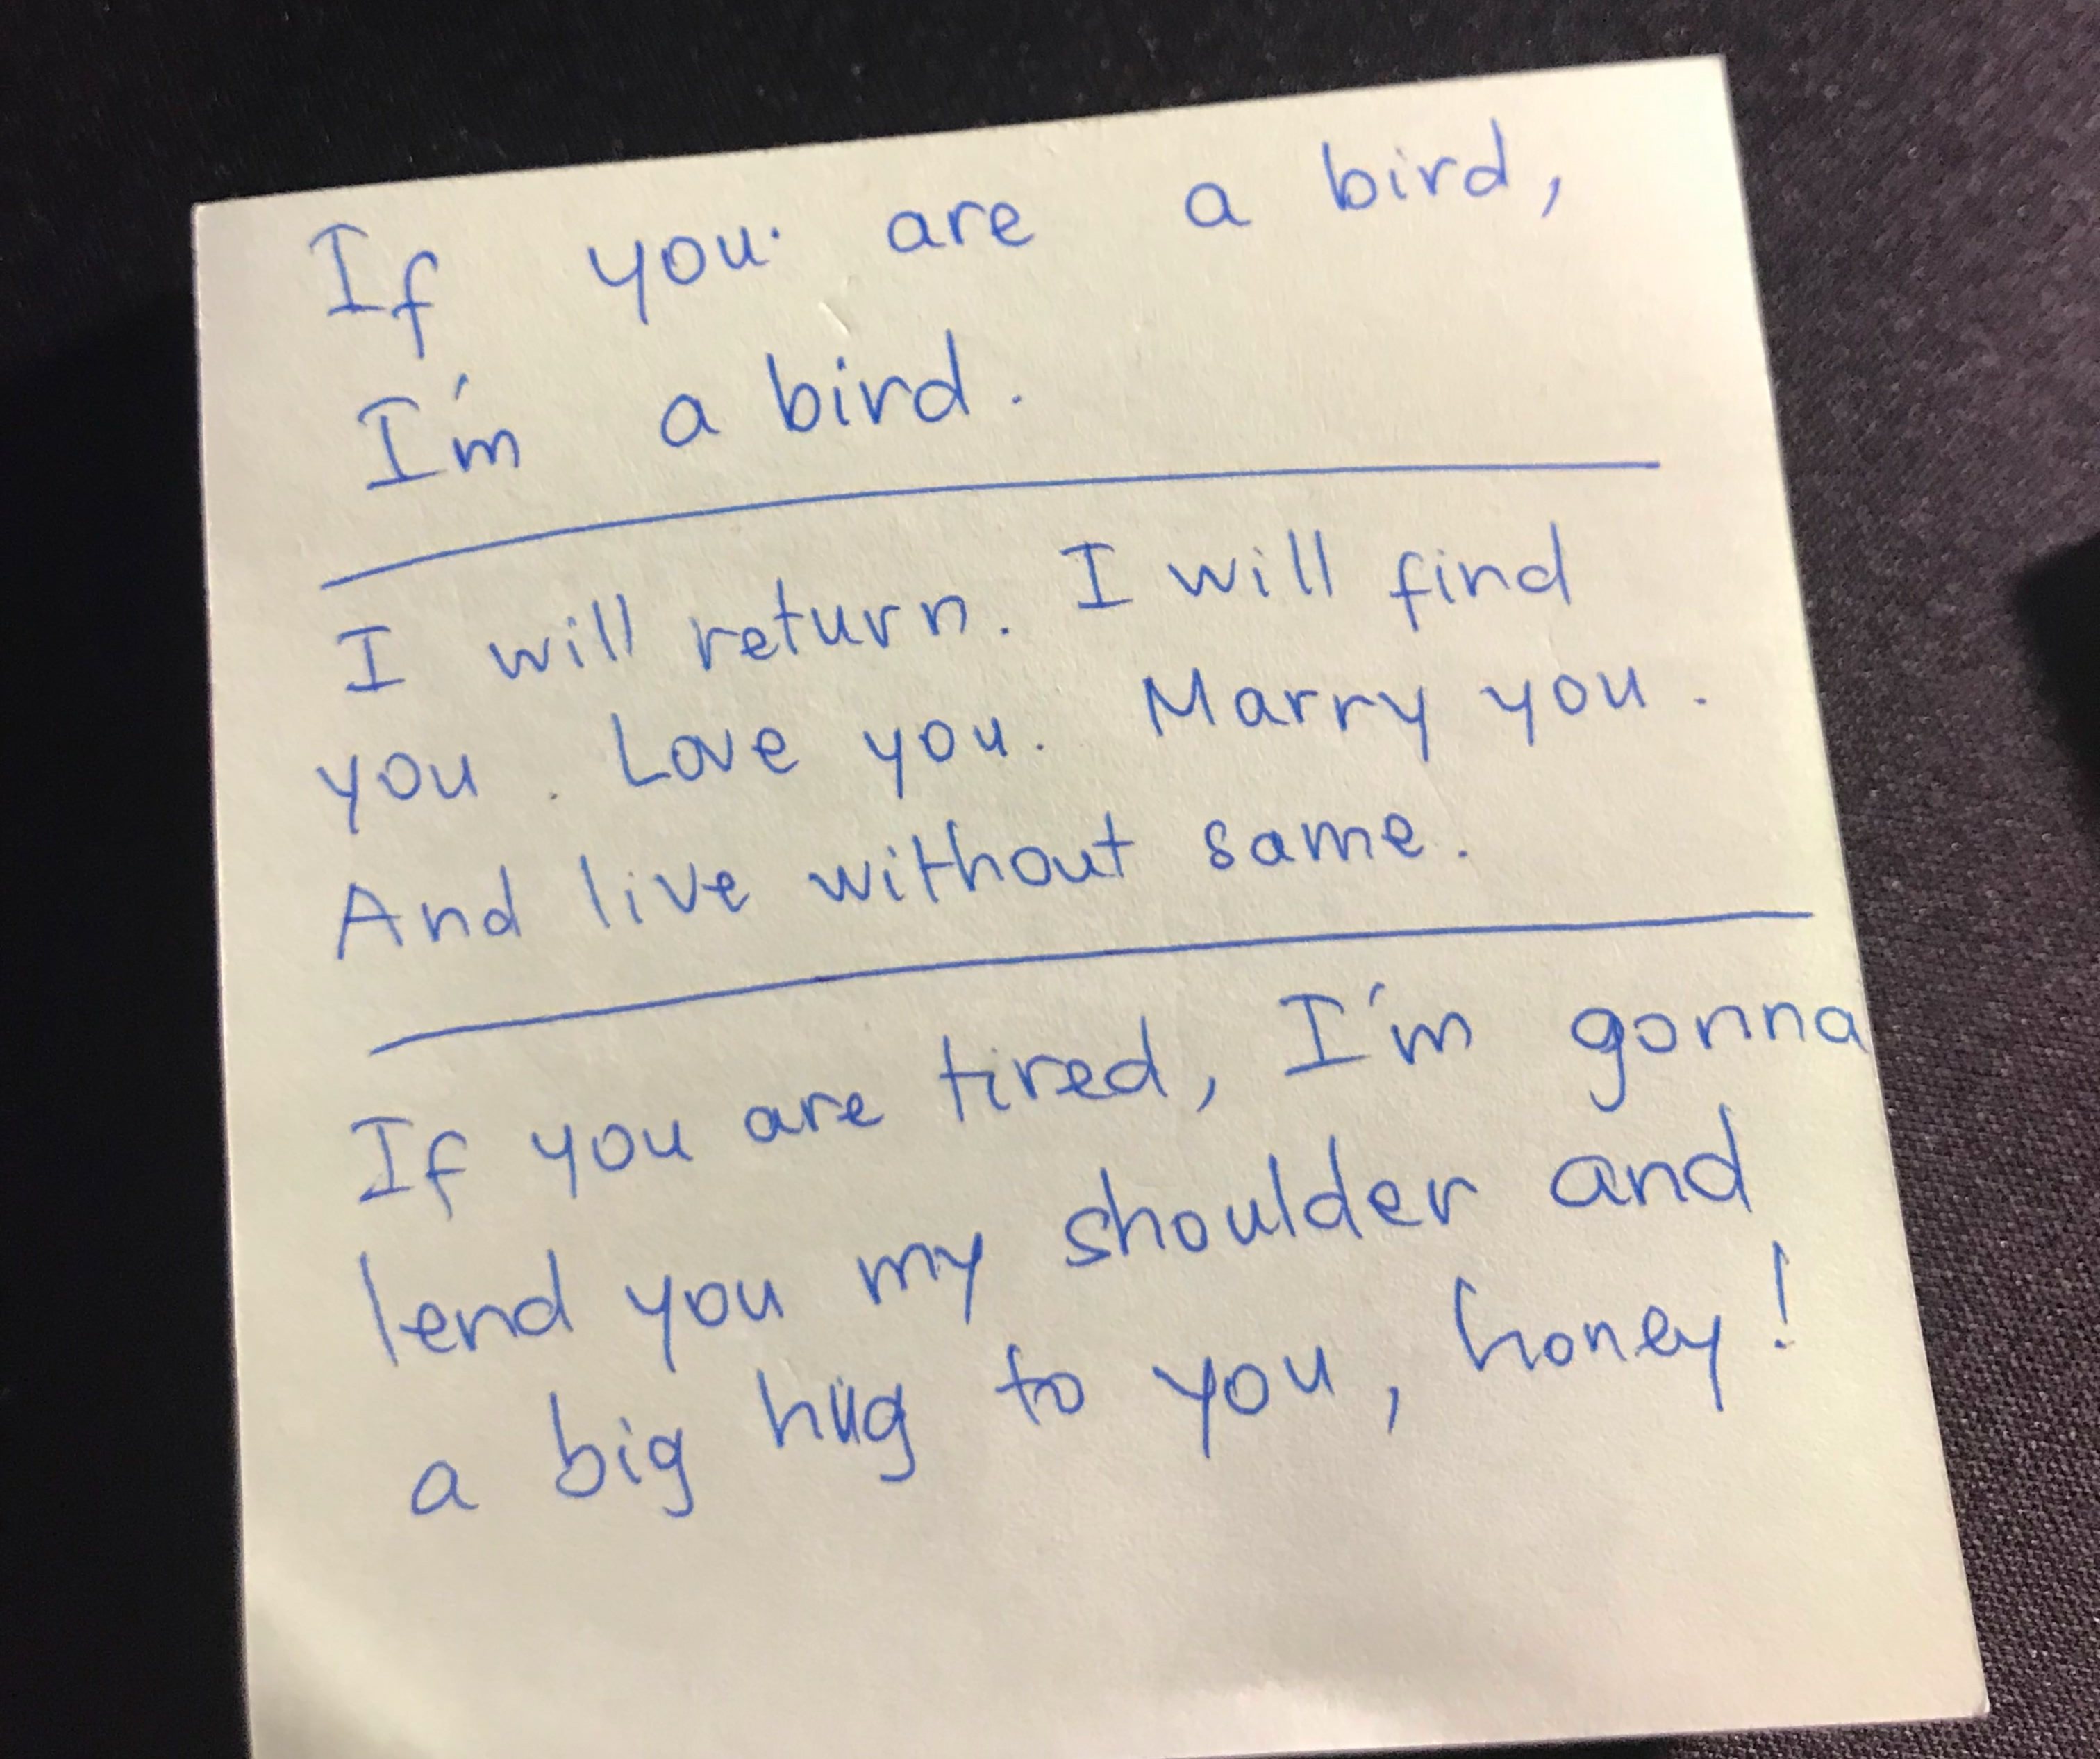 If you are a bird,
I'm a bird.
I will return. I will find
you. Love you. Marry you.
And live without same.
If you are tired, I'm gonna
lend you my shoulder and
a big hug to you, honey!